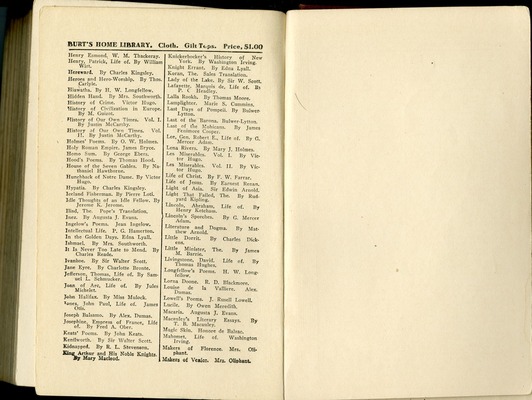 BURT'S HOME LIBRARY. Cloth. Gilt Tops. Price, $1.00
Henry Esmond. W. M. Thackeray.
Henry, Patrick, Life of. By William
Wirt.
Hereward. By Charles Kingsley.
Heroes and Hero-Worship. By Thos.
Carlyle.
Hiawatha. By H. W. Longfellow.
Hidden Hand. By Mrs. Southworth.
History of Crime. Victor Hugo.
History of Civilization in Europe.
By M. Guizot.
History of Our Own Times. Vol. I.
By Justin McCarthy.
History of Our Own Times. Vol.
II. By Justin McCarthy.
Holmes' Poems. By O. W. Holmes.
Holy Roman Empire. James Bryce.
Homo Sum. By George Ebers.
Hood's Poems. By Thomas Hood.
House of the Seven Gables. By Na-
thaniel Hawthorne.
Hunchback of Notre Dame. By Victor
Hugo.
Hypatia. By Charles Kingsley.
Iceland Fisherman. By Pierre Loti.
Idle Thoughts of an Idle Fellow. By
Jerome K. Jerome.
Iliad, The. Pope's Translation.
Inez. By Augusta J. Evans.
Ingelow's Poems. Jean Ingelow.
Intellectual Life. P. G. Hamerton.
In the Golden Days. Edna Lyall.
Ishmael. By Mrs. Southworth.
It Is Never Too Late to Mend. By
Charles Reade.
Ivanhoe. By Sir Walter Scott.
Jane Eyre. By Charlotte Bronte.
Jefferson, Thomas, Life of. By Sam-
uel L. Schmucker.
Joan of Arc, Life of. By Jules
Michelet.
John Halifax. By Miss Mulock.
Jones, John Paul, Life of. James
Otis.
Joseph Balsamo. By Alex. Dumas.
Josephine, Empress of France, Life
of. By Fred A. Ober.
Keats' Poems. By John Keats.
Kenilworth. By Sir Walter Scott.
Kidnapped. By R. L. Stevenson.
King Arthur and His Noble Knights.
By Mary Macleod.
Knickerbocker's History of New
York. By Washington Irving.
Knight Errant. By Edna Lyall.
Koran, The. Sales Translation.
Lady of the Lake. By Sir W. Scott.
Lafayette, Marquis de, Life of. By
P. C. Headley.
Lalla Rookh. By Thomas Moore.
Lamplighter. Marie S. Cummins.
Last Days of Pompeii. By Bulwer-
Lytton.
Last of the Barons. Bulwer-Lytton.
Last of the Mohicans. By James
Fenimore Cooper.
Lee, Gen. Robert E., Life of. By G.
Mercer Adam.
Lena Rivers. By Mary J. Holmes.
Les Miserables. Vol. I. By Vic-
tor Hugo.
Les Miserables. Vol. II. By Vic-
tor Hugo.
Life of Christ. By F. W. Farrar.
Life of Jesus. By Earnest Renan.
Light of Asia. Sir Edwin Arnold.
Light That Failed, The. By Rud-
yard Kipling.
Lincoln, Abraham, Life of. By
Henry Ketcham.
Lincoln's Speeches. By G. Mercer
Adam.
Literature and Dogma. By Mat-
thew Arnold.
Little Dorrit. By Charles Dick-
ens.
Little Minister, The. By James
M. Barrie.
Livingstone, David, Life of. By
Thomas Hughes.
Longfellow's Poems. H. W. Long-
fellow.
Lorna Doone. R. D. Blackmore.
Louise de la Valliere. Alex.
Dumas.
Lowell's Poems. J. Russell Lowell.
Lucile. By Owen Meredith.
Macaria. Augusta J. Evans.
Macaulay's Literary Essays. By
T. B. Macaulay.
Magic Skin. Honore de Balzac.
Mahomet, Life of. Washington
Irving.
Makers of Florence. Mrs. Oli-
phant.
Makers of Venice. Mrs. Oliphant.